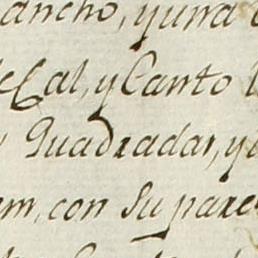 ancho, y una
de Cal, y Canto
Quadradas, y
em, con su pare